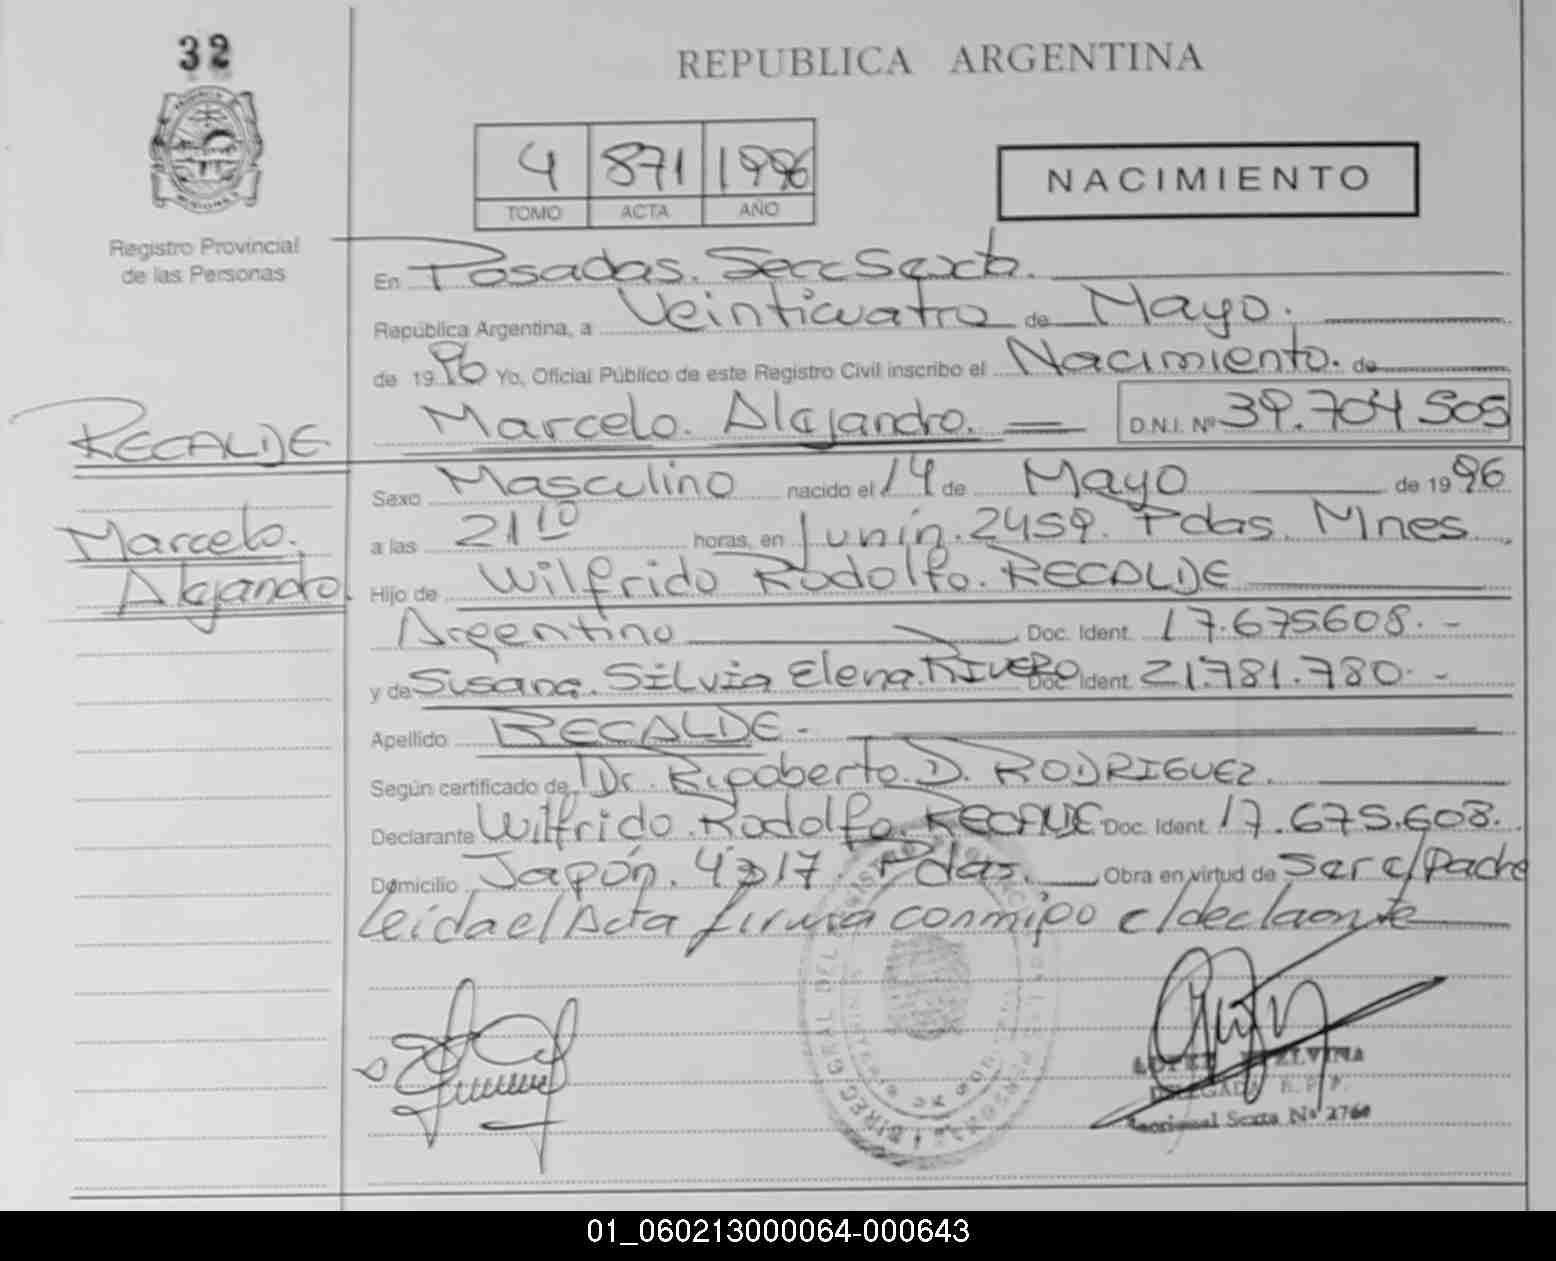 32
REPUBLICA ARGENTINA
4 871 1996
TOMO ACTA AÑO
NACIMIENTO
Registro Provincial
de las Personas
En Posadas. Secc Sexta.
República Argentina, a Veinticuatro de Mayo.
de 1996 Yo, Oficial Público de este Registro Civil inscribo el Nacimiento. de
Marcelo. Alejandro. D.N.I. Nº 39.704 505
RECALDE
Marcelo.
Alejandro.
Sexo Masculino nacido el 14 de Mayo de 1996
a las 21 10 horas, en Junín. 2459. Pdas. Mnes.
Hijo de Wilfrido Rodolfo. RECALDE
Argentino Doc. Ident. 17.675608. -
y de Susana. Silvia Elena. RIVERO Doc. Ident. 21.781.780. -
Apellido RECALDE.
Según certificado de Dr. Rigoberto. D. RODRIGUEZ.
Declarante Wilfrido. Rodolfo. RECALDE Doc. Ident. 17.675.608.
Domicilio Japón. 4317. Pdas. Obra en virtud de Ser el padre
Leida el Acta firma conmigo el declarante
LOPEZ
DELEGADA R.P.P.
Seccional Sexta Nº 2760
01_060213000064-000643